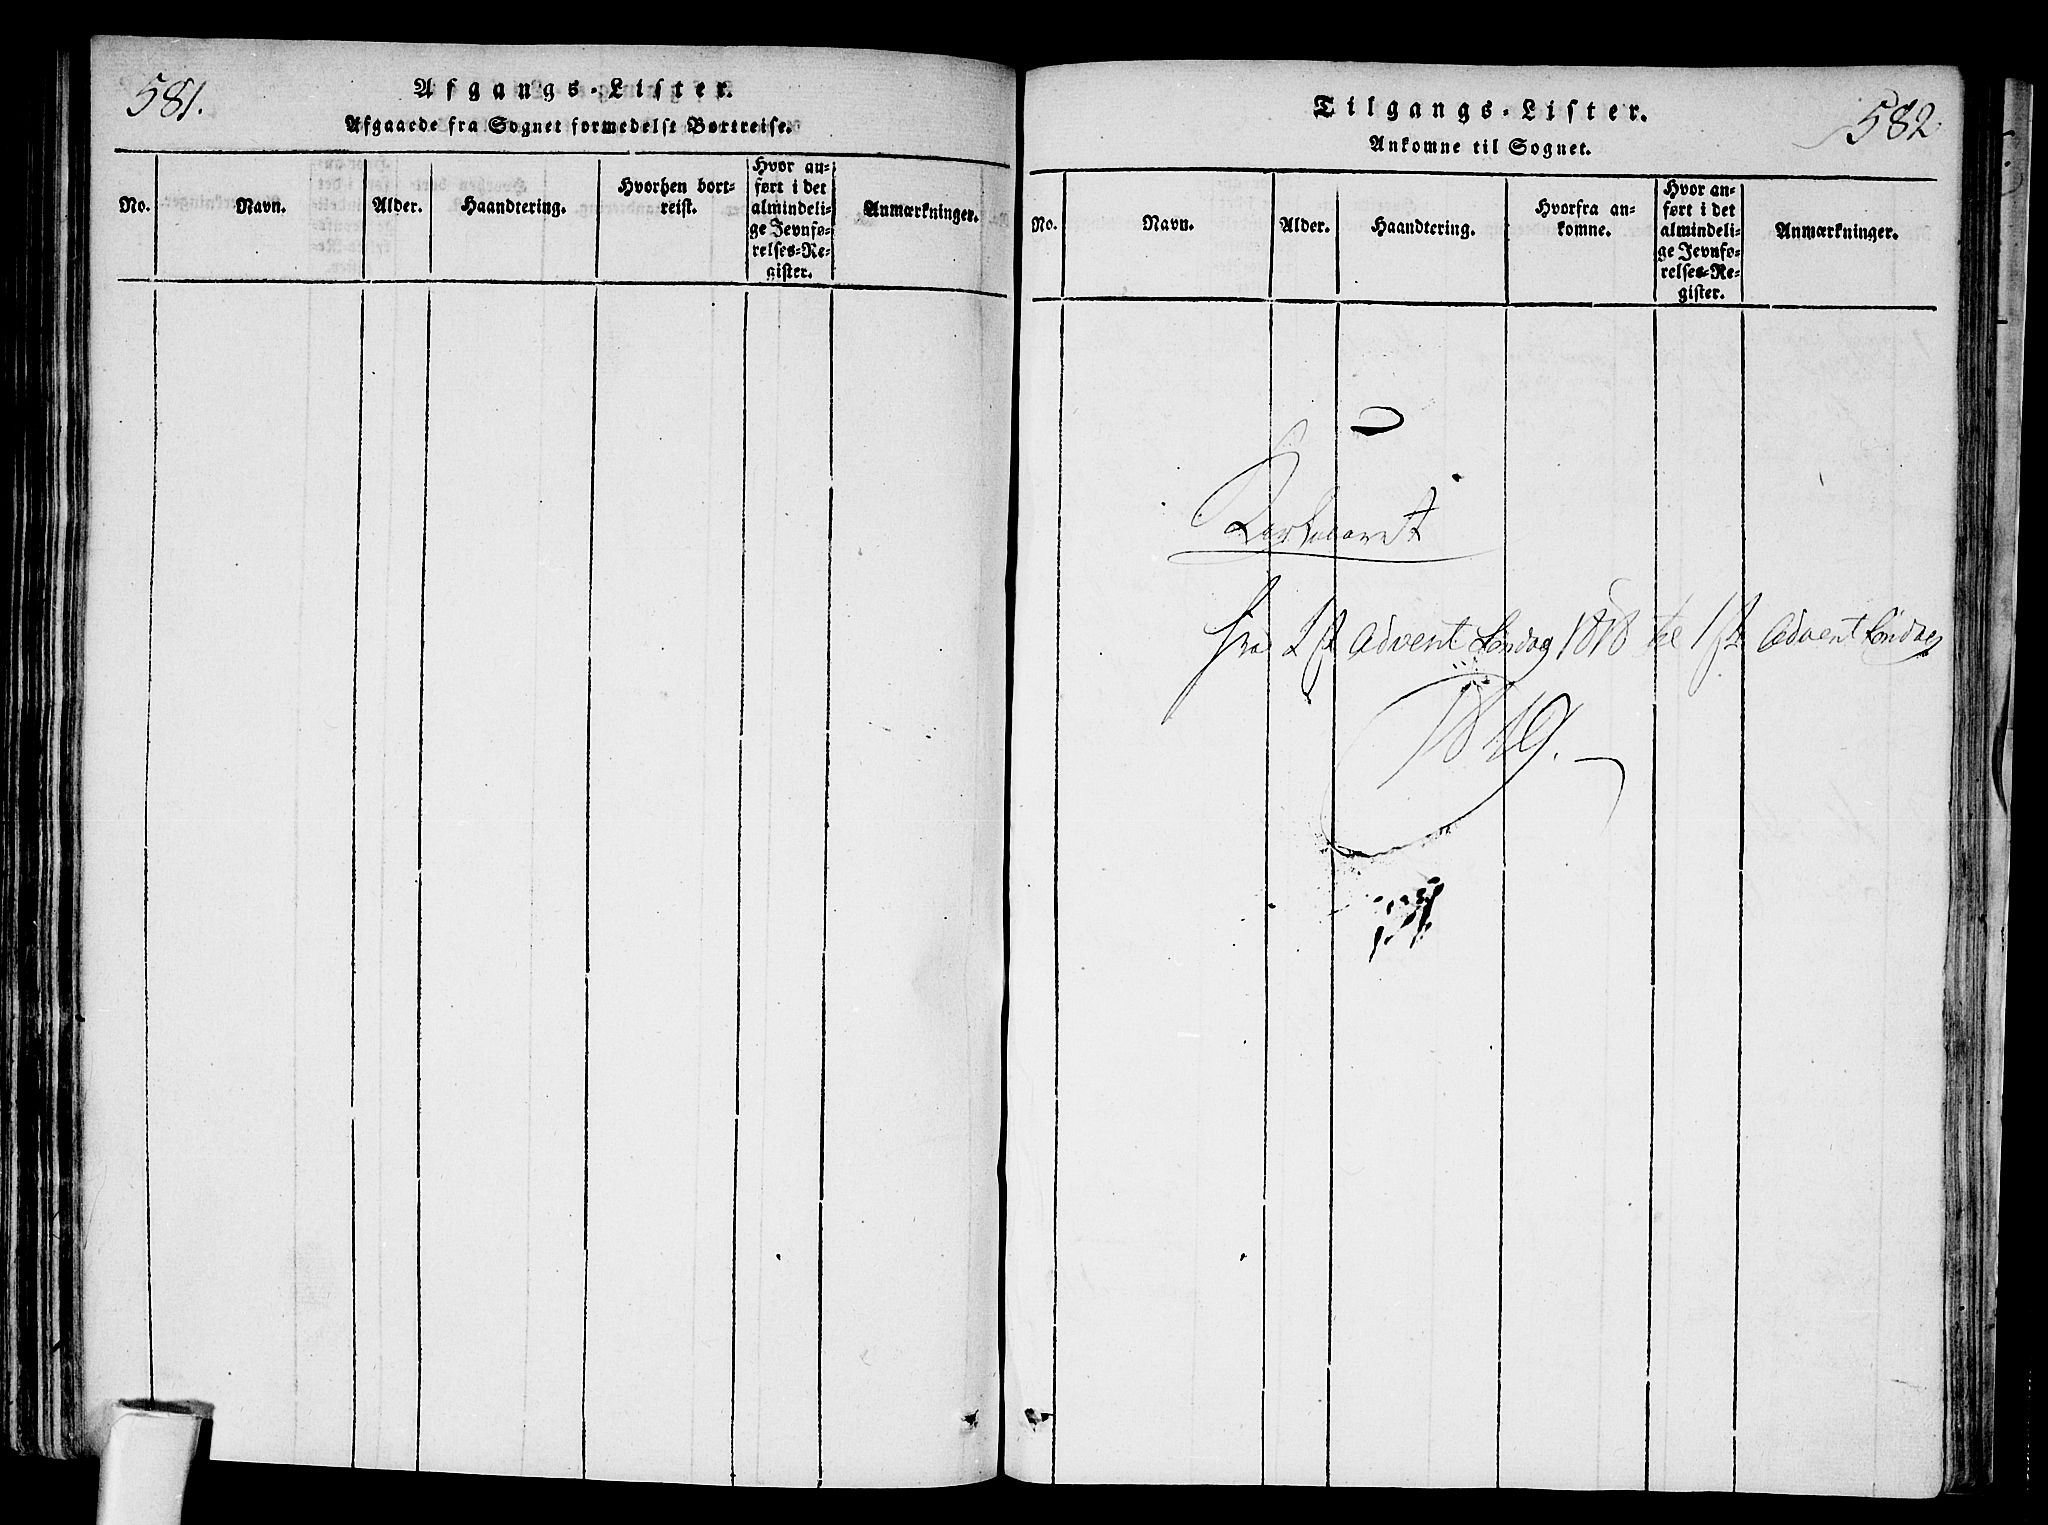 581.
Afgangs-Lister.
Afgaaede fra Sognet formedelst Bortreise.
No.
Navn.
Alder.
Haandtering.
Hvorhen bort-
reist.
Hvor an-
ført i det
almindeli-
ge Jevnfø-
relses-Re-
gister.
Anmærkninger.
582
Tilgangs-Lister.
Ankomne til Sognet.
No.
Navn.
Alder.
Haandtering.
Hvorfra an-
komne.
Hvor an-
ført i det
almindeli-
ge Jevnfø-
relses-Re-
gister.
Anmærkninger.
Kirkeaaret
fra 1st Advent Søndag 1818 til 1ste Advent Søndag
1819.